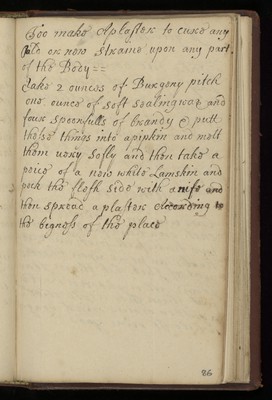 Too make A plaster to cure any
old or new straine upon any part
of the Body ==
Take 2 ounces of Burgony pitch
one ounce of soft sealingwax and
four spoonfulls of brandy & putt
these things into a pipkin and melt
them very sofly and then take a
peice of a new white Lamskin and
peck the flesh side with a knife and
then spread a plaster According to
the bigness of the place
86